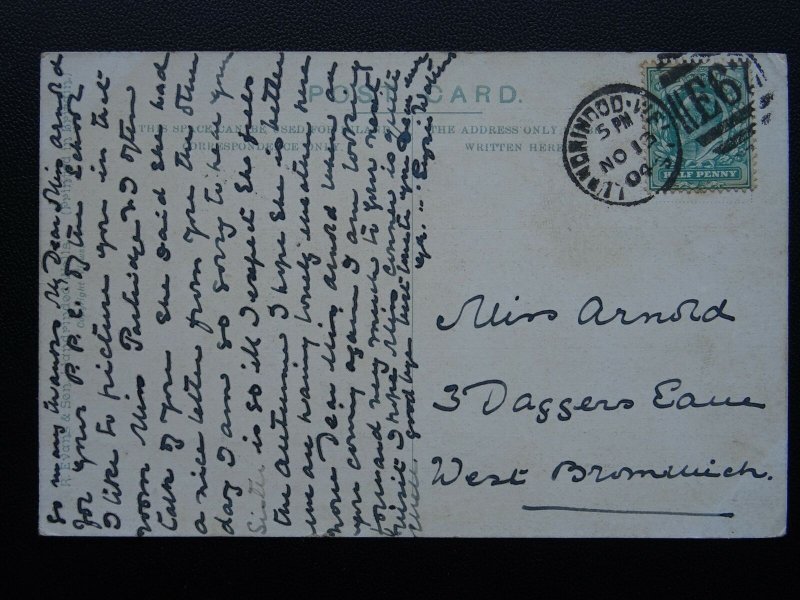 POST CARD.
THIS SPACE CAN BE USED FOR
CORRESPONDENCE ONLY.
THE ADDRESS ONLY
WRITTEN HERE
So many thanks My Dear Miss Arnold
for your P.P.C. of the School
I like to picture you in that
room Miss Partridge & I often
talk of you she said she had
a nice letter from you the other
day I am so sorry to hear your
Sister is so ill I expect she feels
the Autumn I hope she is better
we are having lovely weather here
now Dear Miss Arnold when are
you coming again I am looking
forward very much to your next
visit I hope Miss Corner is quite
well good bye best love to you
LLANDRINDOD-WE
5 PM
NO 13
04
E6
HALF PENNY
Miss Arnold
3 Daggers Lane
West Bromwich.